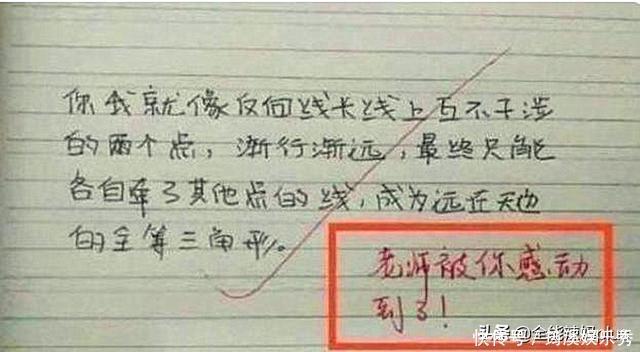 你我就像反向线长线上互不干涉
的两个点，渐行渐远，最终只能
各自牵了其他点的线，成为远在天边
的全等三角形。
老师被你感动
到了！
头条@全能辣妈
快传号/